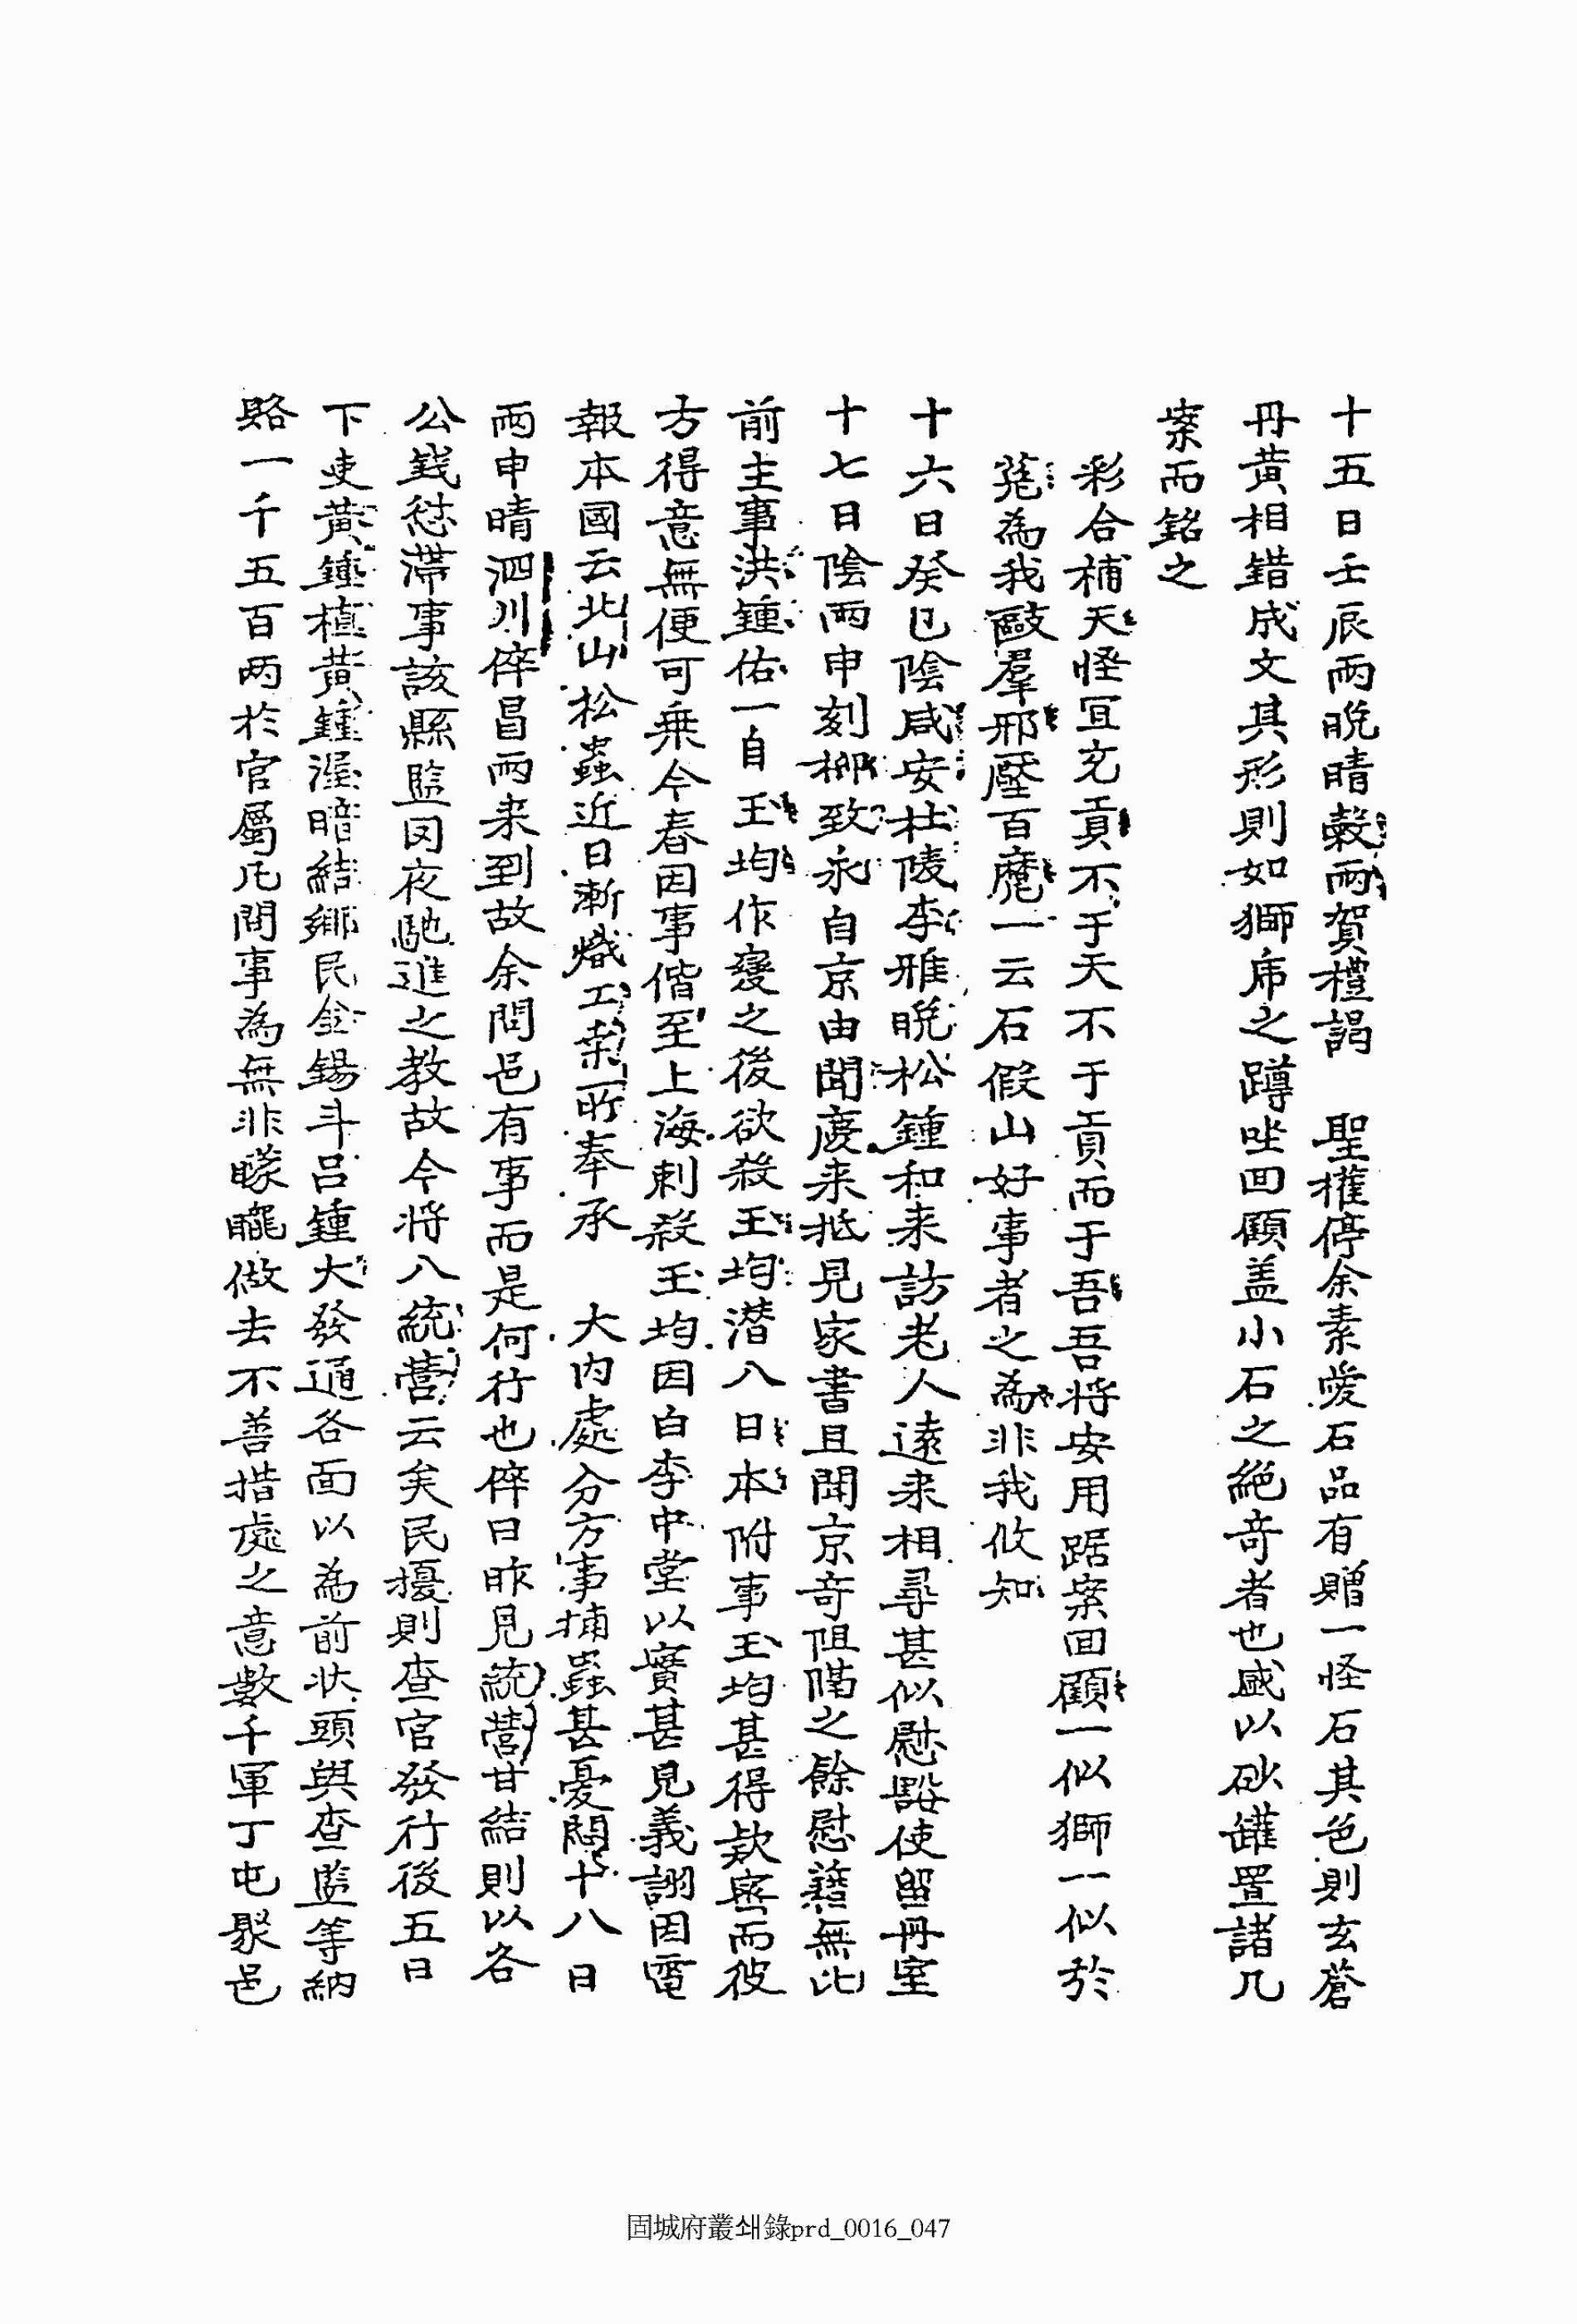 十五日壬辰雨晚晴轂雨賀禮謁 聖權停余素愛石品有贈一怪石其色則玄蒼
丹黃相錯成文其形則如獅席之蹲坐回顧盖小石之絕奇者也盛以砂罐置諸几
案而銘之
彩合補天怪冝充貢不于天不于貢而于吾吾將安用踞案回顧一似獅一似於
菟為我敺羣邪壓百魔一云石假山好事者之為非我攸知
十六日癸巳陰咸安杜陵李雅晩松鍾和来訪老人遠来相尋甚似慰豁使留丹室
十七日陰雨申刻柳致永自京由聞慶来抵見家書且聞京奇阻隔之餘慰藉無比
前主事洪鍾佑一自玉均作變之後欲殺玉均潛入日本附事玉均甚得欵密而彼
方得意無便可乗今春因事偕至上海刺殺玉均因白李中堂以實甚見義詡因電
報本國云北山松蟲近日漸熾工桒所奉承 大内處分方事捕蟲甚憂悶十八日
丙申晴泗川倅昌雨来到故余問邑有事而是何行也倅曰昨見統營甘結則以各
公錢愆滯事該縣監罔夜馳進之教故今將入統營云矣民擾則查官發行後五日
下吏黃鍾植黃鍾渥暗結鄉民金錫斗呂鍾大發通各面以為前狀頭與查監等納
賂一千五百两於官屬凡問事為無非矇矓做去不善措處之意數千軍丁屯聚邑
固城府叢쇄錄prd_0016_047